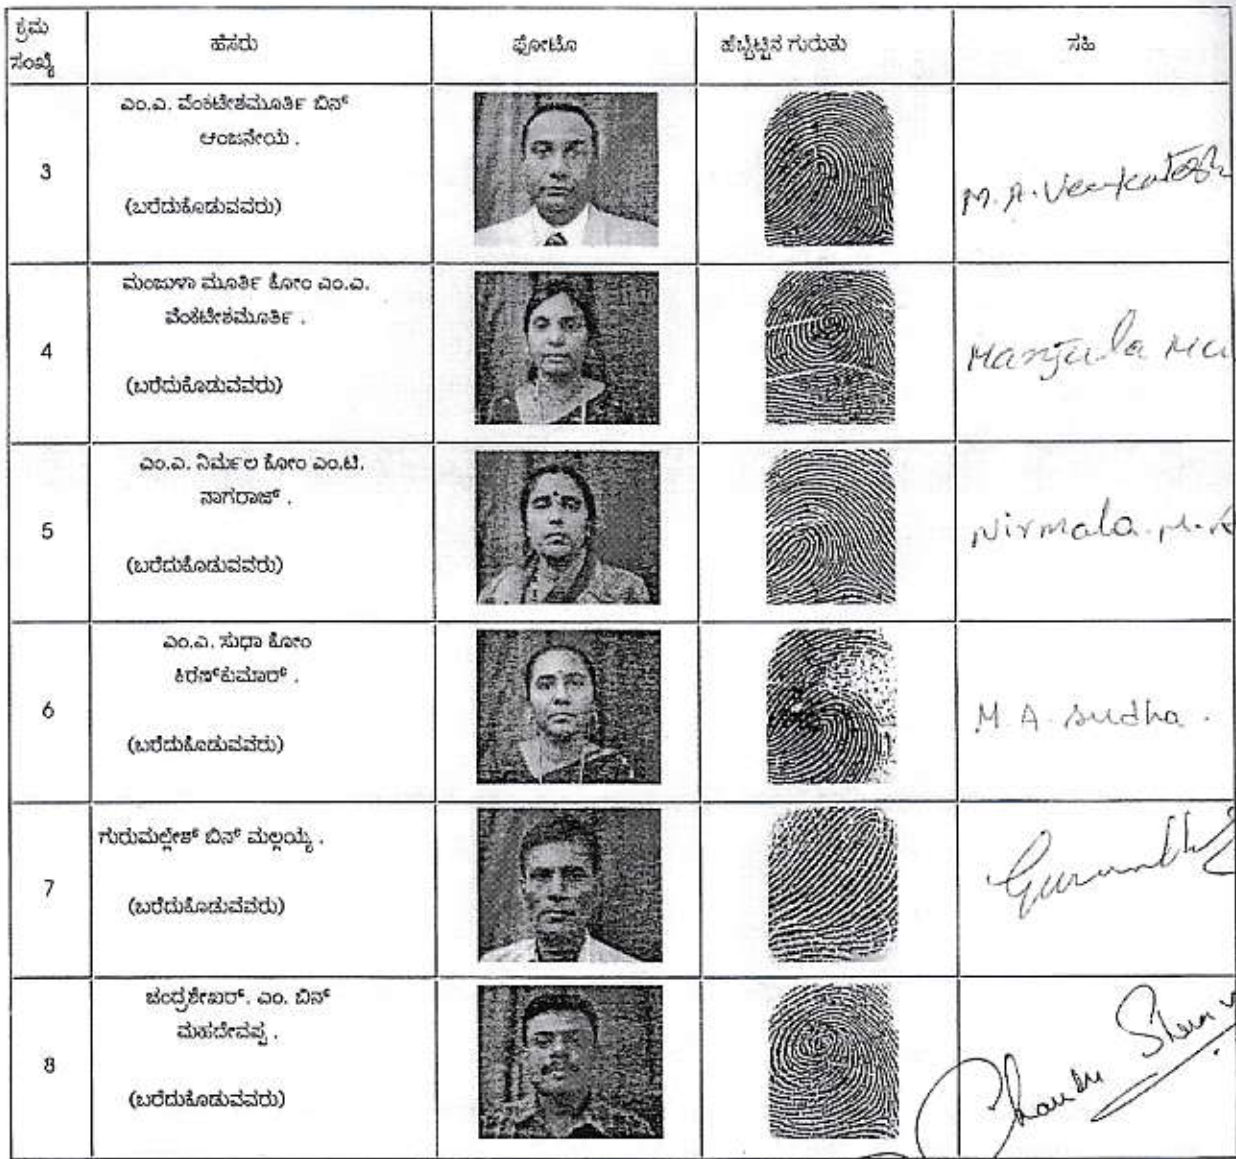 ಕ್ರಮ
ಸಂಖ್ಯೆ
ಹೆಸರು
ಫೋಟೊ
ಹೆಬ್ಬೆಟ್ಟಿನ ಗುರುತು
ಸಹಿ
3
ಎಂ.ಎ. ವೆಂಕಟೇಶಮೂರ್ತಿ ಬಿನ್
ಆಂಜನೇಯ .
(ಬರೆದುಕೊಡುವವರು)
M.A. Venkatesh
4
ಮಂಜುಳಾ ಮೂರ್ತಿ ಕೋಂ ಎಂ.ಎ.
ವೆಂಕಟೇಶಮೂರ್ತಿ .
(ಬರೆದುಕೊಡುವವರು)
Manjula
5
ಎಂ.ಎ. ನಿರ್ಮಲ ಕೋಂ ಎಂ.ಟಿ.
ನಾಗರಾಜ್ .
(ಬರೆದುಕೊಡುವವರು)
Nirmala. M. A
6
ಎಂ.ಎ. ಸುಧಾ ಕೋಂ
ಕಿರಣ್‌ಕುಮಾರ್ .
(ಬರೆದುಕೊಡುವವರು)
M. A. Sudha .
7
ಗುರುಮಲ್ಲೇಶ್ ಬಿನ್ ಮಲ್ಲಯ್ಯ .
(ಬರೆದುಕೊಡುವವರು)
8
ಚಂದ್ರಶೇಖರ್. ಎಂ. ಬಿನ್
ಮಹದೇವಪ್ಪ .
(ಬರೆದುಕೊಡುವವರು)